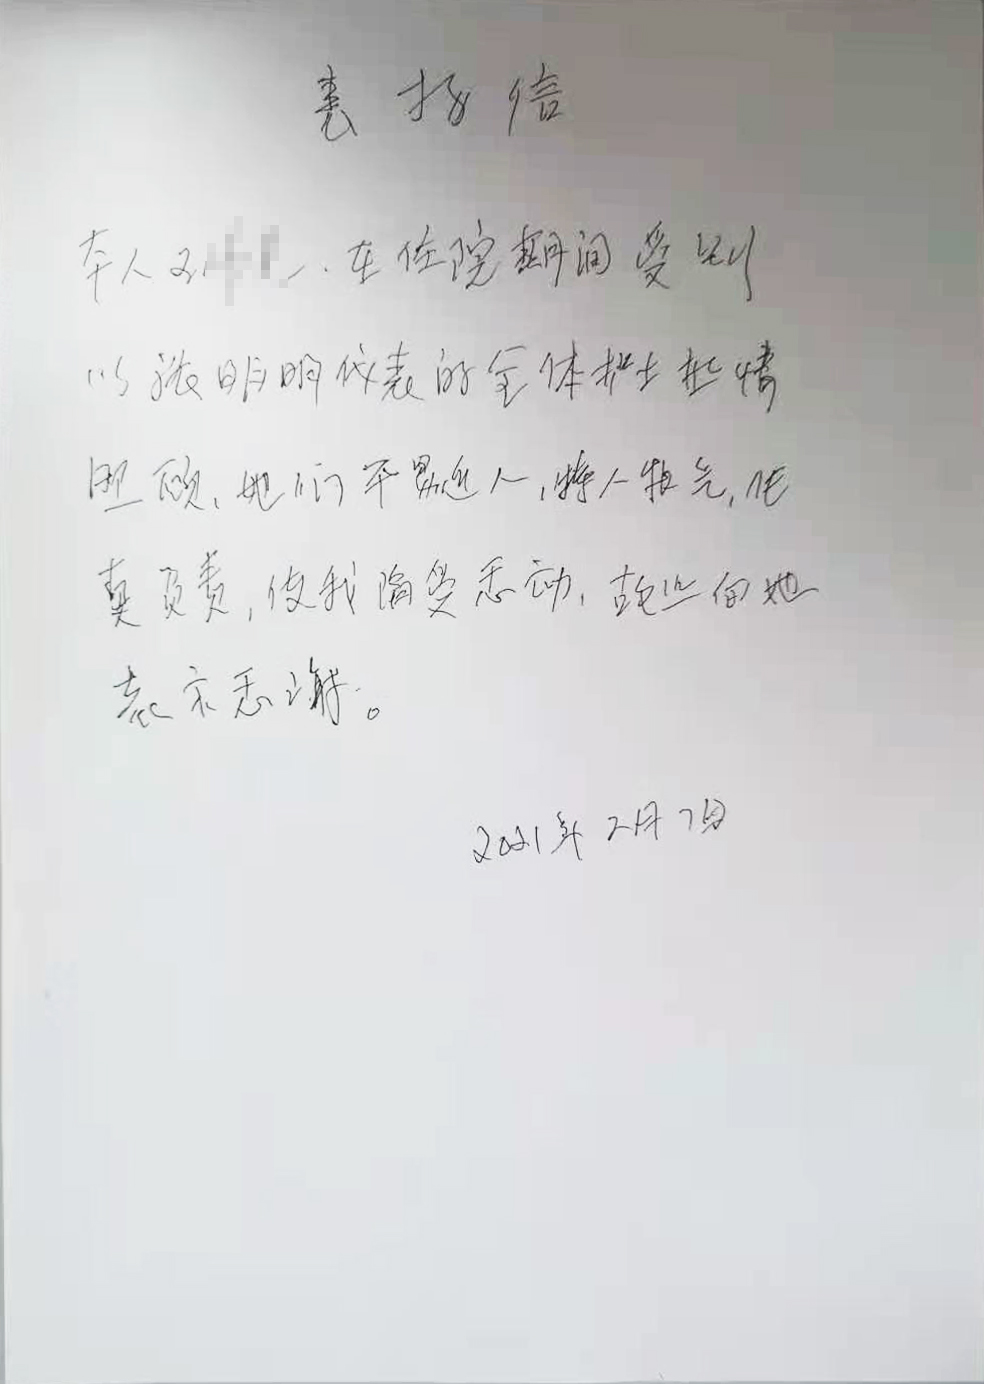 表扬信
本人、在住院期间受到
以张明明代表的全体护士热情
照顾,她们平易近人,待人和气,认
真负责,使我深受感动,故此向她
表示感谢。
2021年2月7日